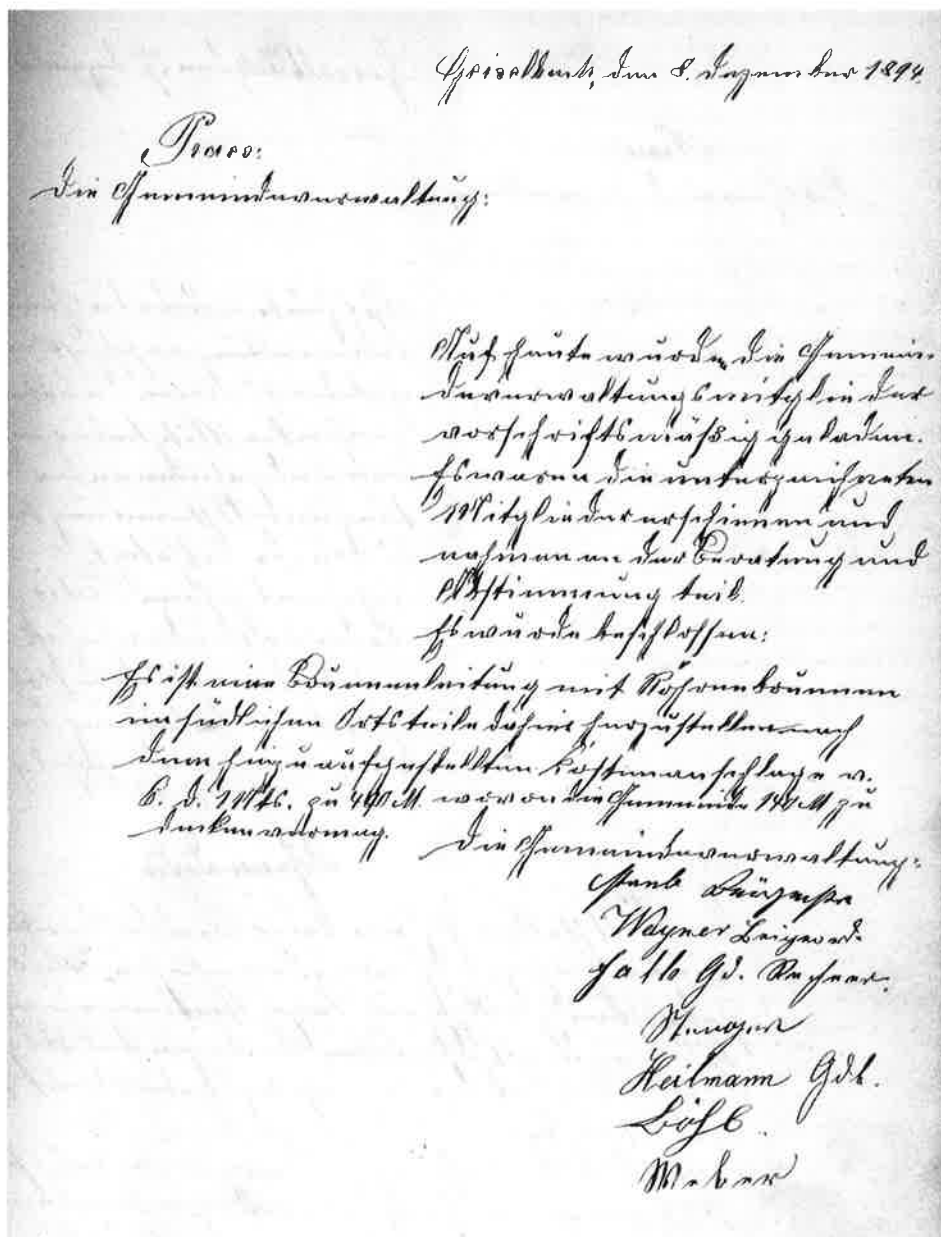 Geiselbach, den 8. Dezember 1894.
Praes:
Die Gemeindeverwaltung:
Auf heute wurden die Gemein-
deverwaltungsmitglieder
vorschriftsmäßig geladen.
Es waren die unterzeichneten
Mitglieder erschienen und
nahmen an der Beratung und
Abstimmung teil.
Es wurde beschlossen:
Es ist eine Brunnenleitung mit Röhrenbrunnen
im südlichen Ortsteile dahier herzustellen nach
dem hiezu aufgestellten Kostenanschlage v.
6. d. Mts. zu 400 M. wovon die Gemeinde 140 M zu
decken vermag.
Die Gemeindeverwaltung:
Bürgermstr
Wagner Beigeord.
Gd. Rechner.
Stenger
Heilmann Gdb.
Weber